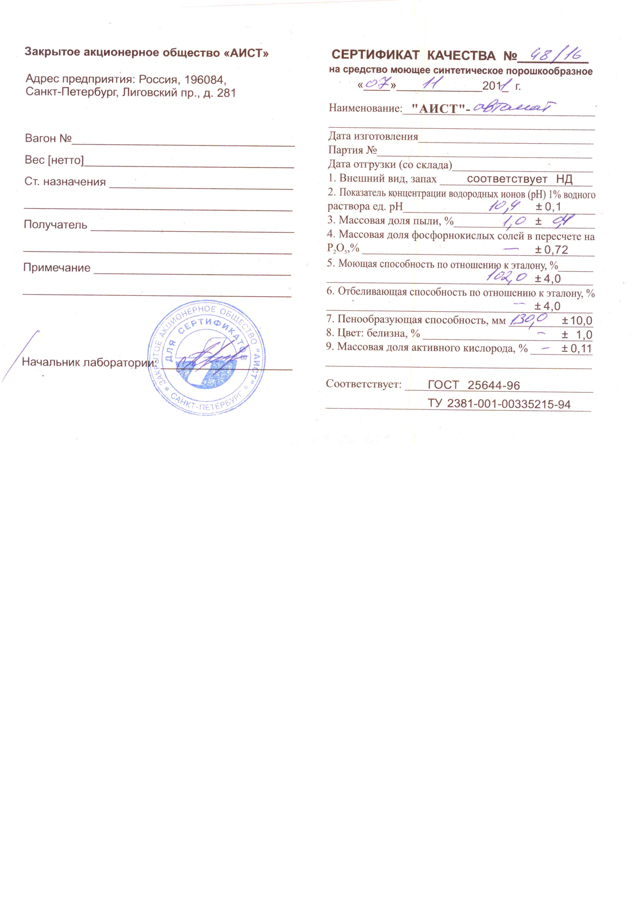 Закрытое акционерное общество «АИСТ»
Адрес предприятия: Россия, 196084,
Санкт-Петербург, Лиговский пр., д. 281
Вагон №
Вес [нетто]
Ст. назначения
Получатель
Примечание
Начальник лаборатории:
ЗАКРЫТОЕ АКЦИОНЕРНОЕ ОБЩЕСТВО «АИСТ»
САНКТ-ПЕТЕРБУРГ
ДЛЯ СЕРТИФИКАТОВ
СЕРТИФИКАТ КАЧЕСТВА № 48/16
на средство моющее синтетическое порошкообразное
«07» 11 2011 г.
Наименование: "АИСТ"- автомат
Дата изготовления
Партия №
Дата отгрузки (со склада)
1. Внешний вид, запах соответствует НД
2. Показатель концентрации водородных ионов (pH) 1% водного
раствора ед. pH 10,4 ± 0,1
3. Массовая доля пыли, % 1,0 ± 0,4
4. Массовая доля фосфорнокислых солей в пересчете на
P₂O₅,% — ± 0,72
5. Моющая способность по отношению к эталону, %
102,0 ± 4,0
6. Отбеливающая способность по отношению к эталону, %
— ± 4,0
7. Пенообразующая способность, мм 130,0 ± 10,0
8. Цвет: белизна, % — ± 1,0
9. Массовая доля активного кислорода, % — ± 0,11
Соответствует: ГОСТ 25644-96
ТУ 2381-001-00335215-94